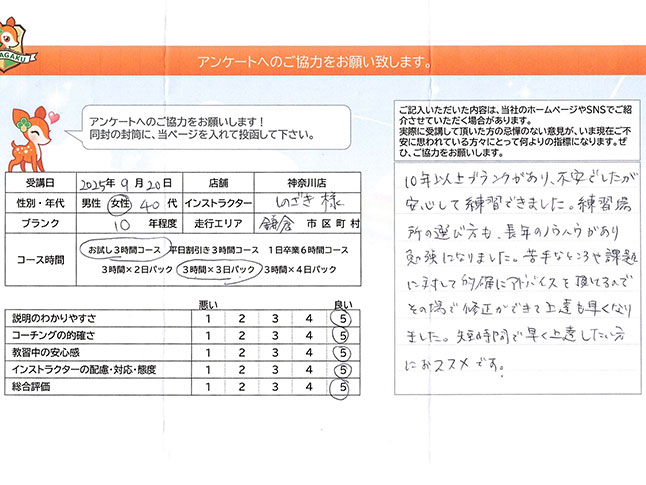 AGAKU
アンケートへのご協力をお願い致します。
アンケートへのご協力をお願いします！
同封の封筒に、当ページを入れて投函して下さい。
受講日 2025年 9月 20日 店舗 神奈川店
性別・年代 男性 女性 40代 インストラクター しのざき 様
ブランク 10 年程度 走行エリア 鎌倉 市区町村
コース時間 お試し3時間コース 平日割引き3時間コース 1日卒業6時間コース
3時間×2日パック 3時間×3日パック 3時間×4日パック
悪い 良い
説明のわかりやすさ 1 2 3 4 5
コーチングの的確さ 1 2 3 4 5
教習中の安心感 1 2 3 4 5
インストラクターの配慮・対応・態度 1 2 3 4 5
総合評価 1 2 3 4 5
ご記入いただいた内容は、当社のホームページやSNSでご紹
介させていただく場合があります。
実際に受講して頂いた方の忌憚のない意見が、いま現在ご不
安に思われている方々にとって何よりの指標になります。ぜ
ひ、ご協力をお願いします。
10年以上ブランクがあり、不安でしたが
安心して練習できました。練習場
所の選び方も、長年のノウハウがあり
勉強になりました。苦手なところや課題
に対して的確にアドバイスを頂けるので
その場で修正ができて上達も早くなり
ました。短時間で早く上達したい方
におススメです。